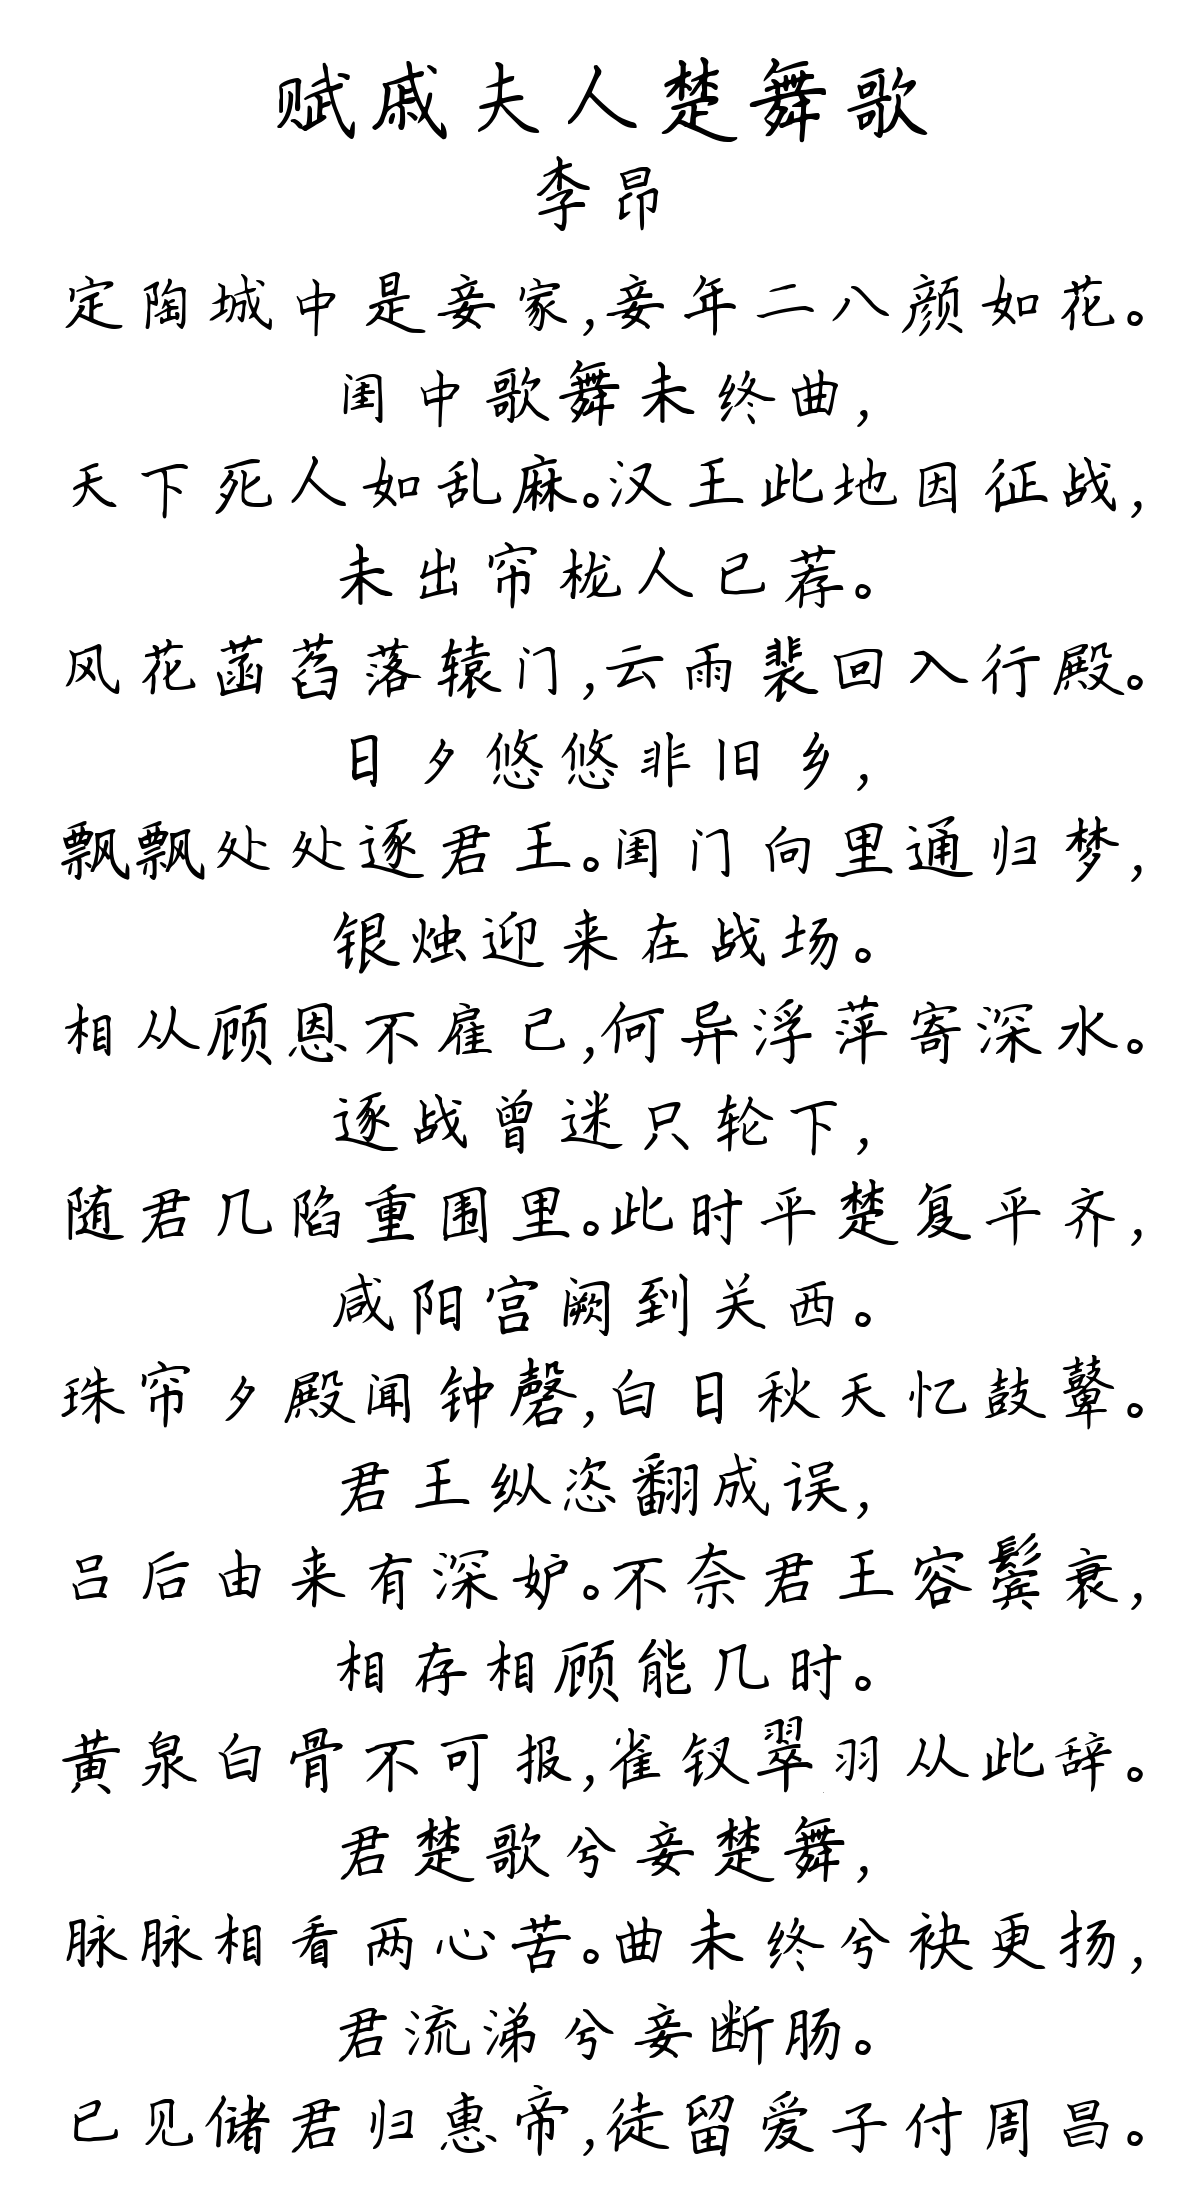 赋戚夫人楚舞歌
李昂
定陶城中是妾家,妾年二八颜如花。
闺中歌舞未终曲,
天下死人如乱麻。汉王此地因征战,
未出帘栊人已荐。
风花菡萏落辕门,云雨裴回入行殿。
日夕悠悠非旧乡,
飘飘处处逐君王。闺门向里通归梦,
银烛迎来在战场。
相从顾恩不雇己,何异浮萍寄深水。
逐战曾迷只轮下,
随君几陷重围里。此时平楚复平齐,
咸阳宫阙到关西。
珠帘夕殿闻钟磬,白日秋天忆鼓鼙。
君王纵恣翻成误,
吕后由来有深妒。不奈君王容鬓衰,
相存相顾能几时。
黄泉白骨不可报,雀钗翠羽从此辞。
君楚歌兮妾楚舞,
脉脉相看两心苦。曲未终兮袂更扬,
君流涕兮妾断肠。
已见储君归惠帝,徒留爱子付周昌。